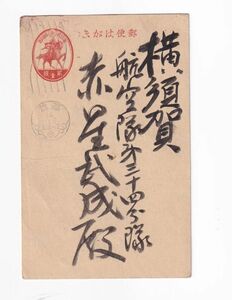 郵便はがき
横須賀
航空隊第三十四分隊
赤星武成殿